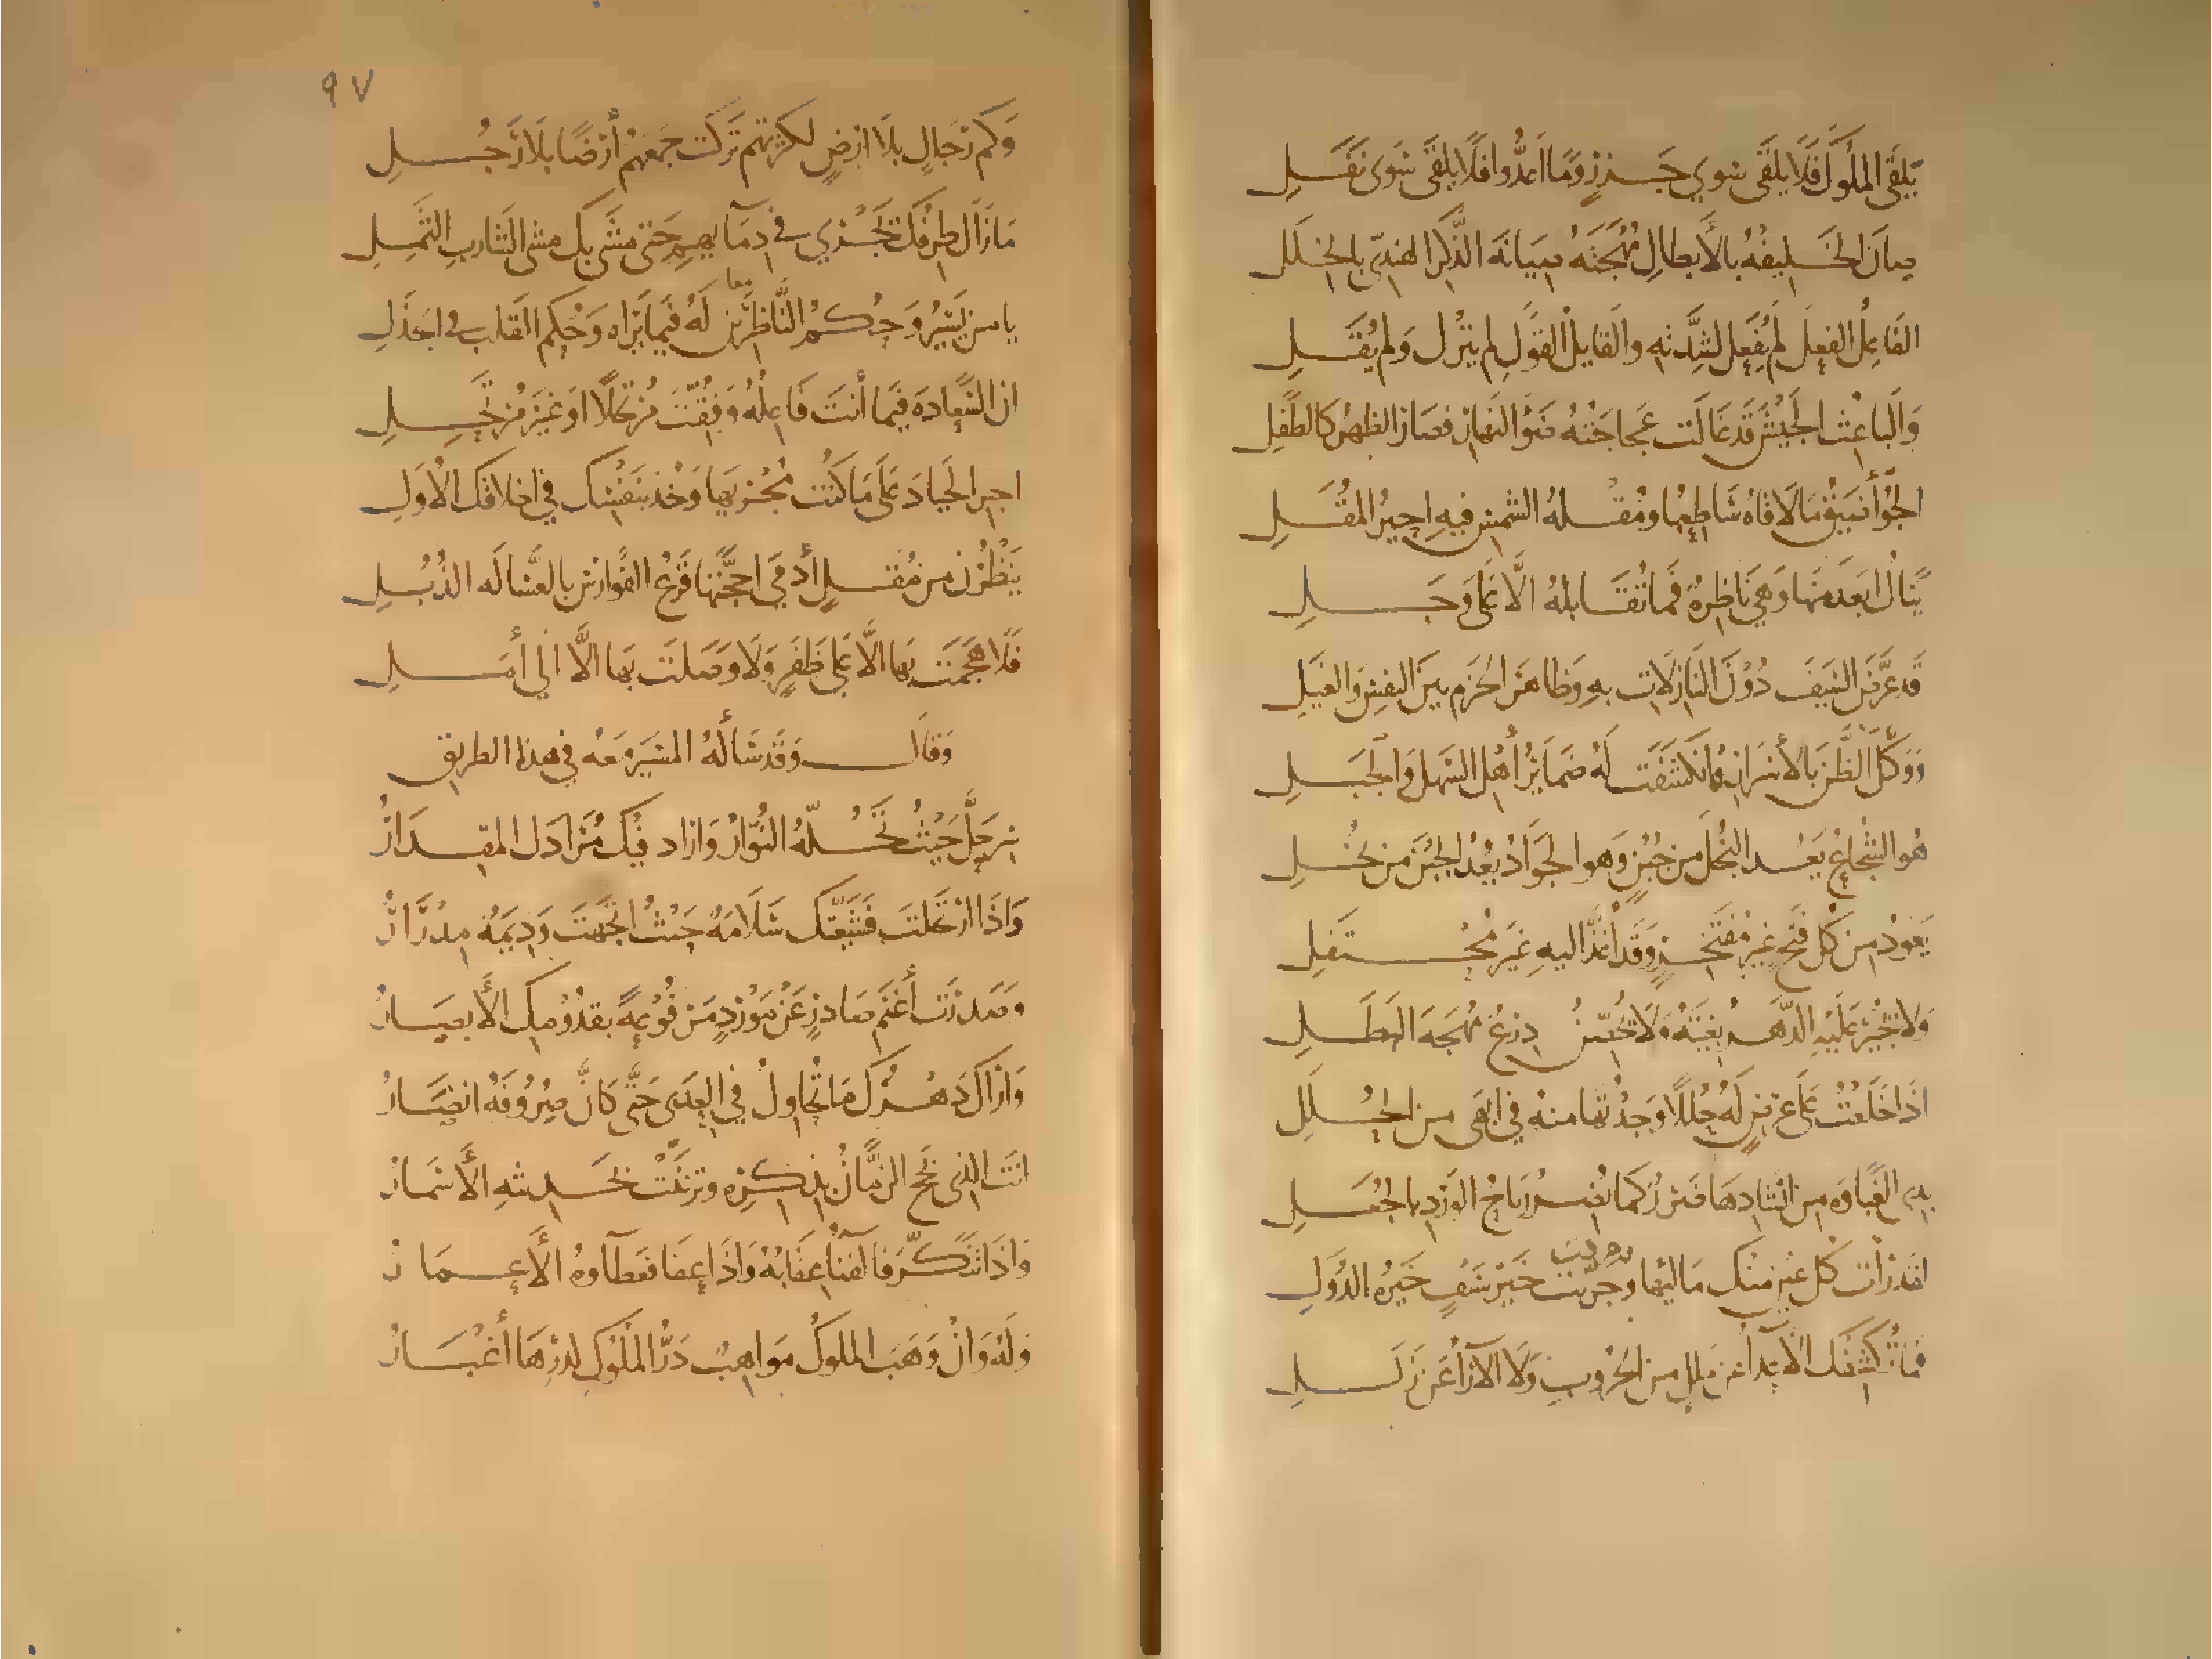 يلقى الملوك فلا يلقى سوى جزر وما اعدوا فلا يلقى سوى نفل
صان الخليفة بالأبطال مهجته صيانة الذكر الهندي بالخلل
الفاعل الفعل لم يفعل لشدته والقايل القول لم يترك ولم يقل
والباعث الجيش قد غالت عجاجته ضوء النهار فصار الظهر كالطفل
الجو أضيق ما لاقاه ساطعها ومقلة الشمس فيه احير المقل
ينال ابعد منها وهي ناظرة فما تقابله الا على وجل
قد عرض السيف دون النازلات به وظاهر الحزم بين النفس والغيل
ووكل الظن بالأسرار فانكشفت له ضماير أهل السهل والجبل
هو الشجاع يعد البخل من جبن وهو الجواد يعد الجبن من بخل
يعود من كل فتح غير مفتخر وقد أغذ اليه غير محتفل
ولا يجير عليه الدهر بغيته ولا تحصن درع مهجة البطل
اذا خلعت على عرض له حللا وجدتها منه في ابهى من الحلل
بذي الغباوة من انشادها ضرر كما تضر رياح الورد بالجعل
لقد رات كل عين منك ماليها وجربت خير سيف خيرة الدول
فما تكشفك الاعدا عن ملل من الحروب ولا الآراء عن زلل
٩٧
وكم رجال بلا ارض لكثرتهم تركت جمعهم أرضا بلا رجل
ما زال طرفك يجري في دمآيهم حتى مشى بك مشى الشارب الثمل
يا من يسير وحكم الناظرين له فيما يراه وحكم القلب في الجذل
ان السعادة فيما أنت فاعله وفقت مرتحلا او غير مرتحل
اجر الجياد على ما كنت مجريها وخذ بنفسك في اخلاقك الاول
ينظرن من مقل أدمي احجتها قرع الفوارس بالعسالة الذبل
فلا هجمت بها الا على ظفر ولا وصلت بها الا الى أمل
وقال وقد سأله المسير معه في هذا الطريق
سر حل حيث تحله النوار واراد فيك مرادك المقدار
واذا ارتحلت فشيعتك سلامة حيث اتجهت وديمة مدرار
وصدرت أغنم صادر عن مورد مرفوعة بقدومك الأبصار
واراك دهرك ما تحاول في العدى حتى كان صروفه انصار
انت الذي بجح الزمان بذكره وتزينت بحديثه الأسمار
واذا تنكر فالفنا عقابه واذا عفا فعطآوه الأعمار
وله وان وهب الملوك مواهب در الملوك لدرها أغبار